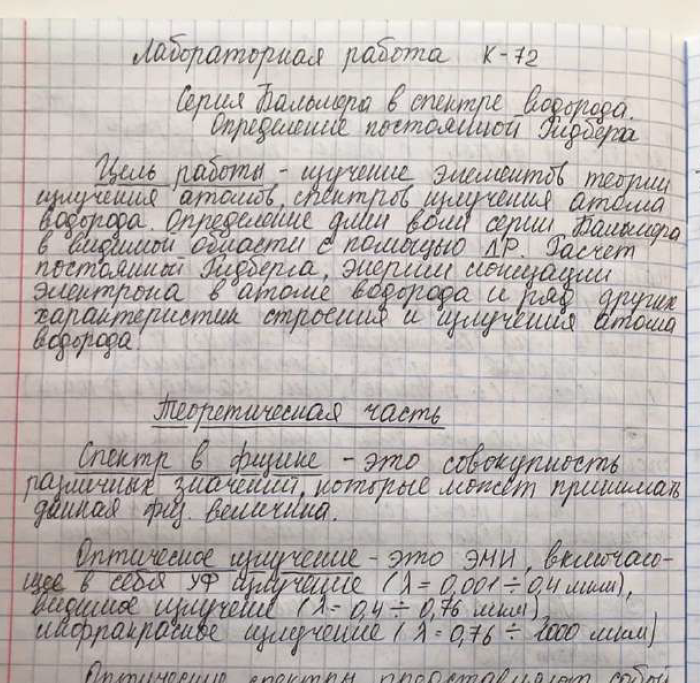 Лабораторная работа К-72
Серия Бальмера в спектре водорода.
Определение постоянной Ридберга
Цель работы - изучение элементов теории
излучения атомов, спектров излучения атома
водорода. Определение длин волн серии Бальмера
в видимой области с помощью ЛР. Расчет
постоянной Ридберга, энергии ионизации
электрона в атоме водорода и ряд других
характеристик строения и излучения атома
водорода
Теоретическая часть
Спектр в физике - это совокупность
различных значений, которые может принимать
данная физ. величина.
Оптическое излучение - это ЭМИ, включаю-
щее в себя УФ излучение (λ = 0,001 ÷ 0,4 мкм),
видимое излучение (λ = 0,4 ÷ 0,76 мкм),
инфракрасное излучение (λ = 0,76 ÷ 1000 мкм)
Оптические спектры представляют собой